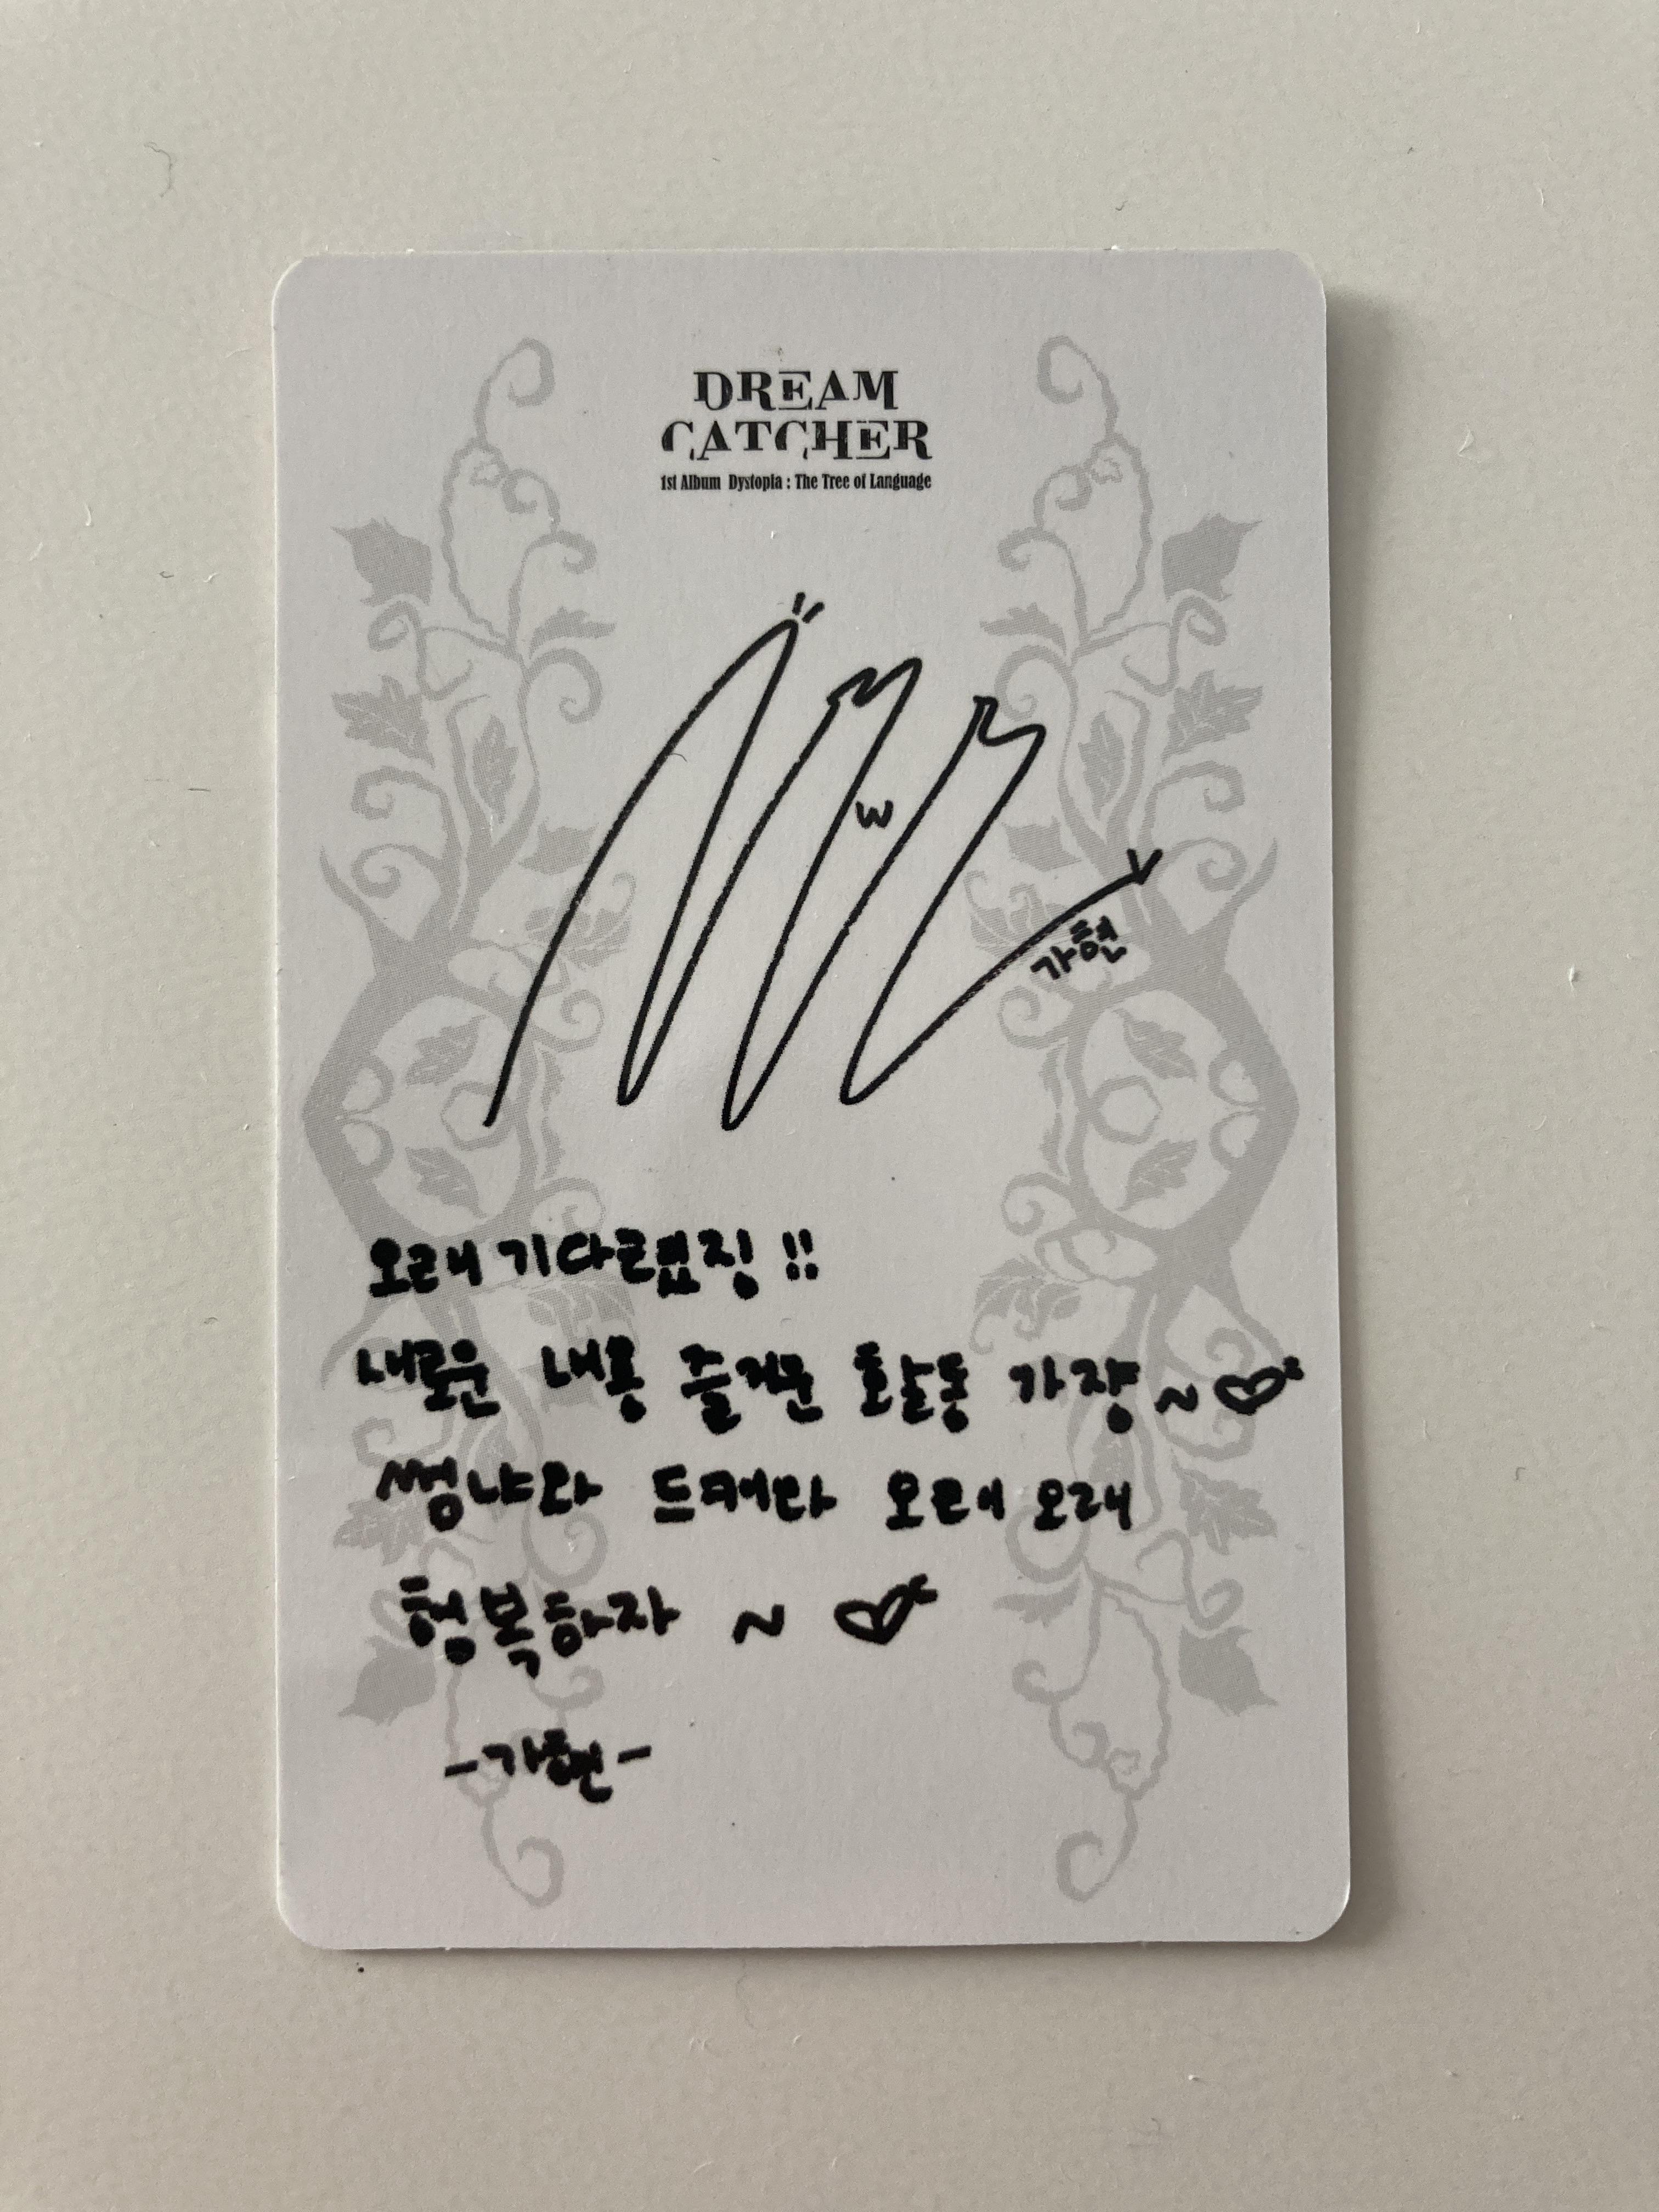 DREAM
CATCHER
1st Album Dystopia : The Tree of Language
w
가현
오래 기다렸징 !!
새로운 내용 즐거운 활동 가쟝~♡
썸냐와 드캐라 오래 오래
행복하자 ~ ♡
-가현-